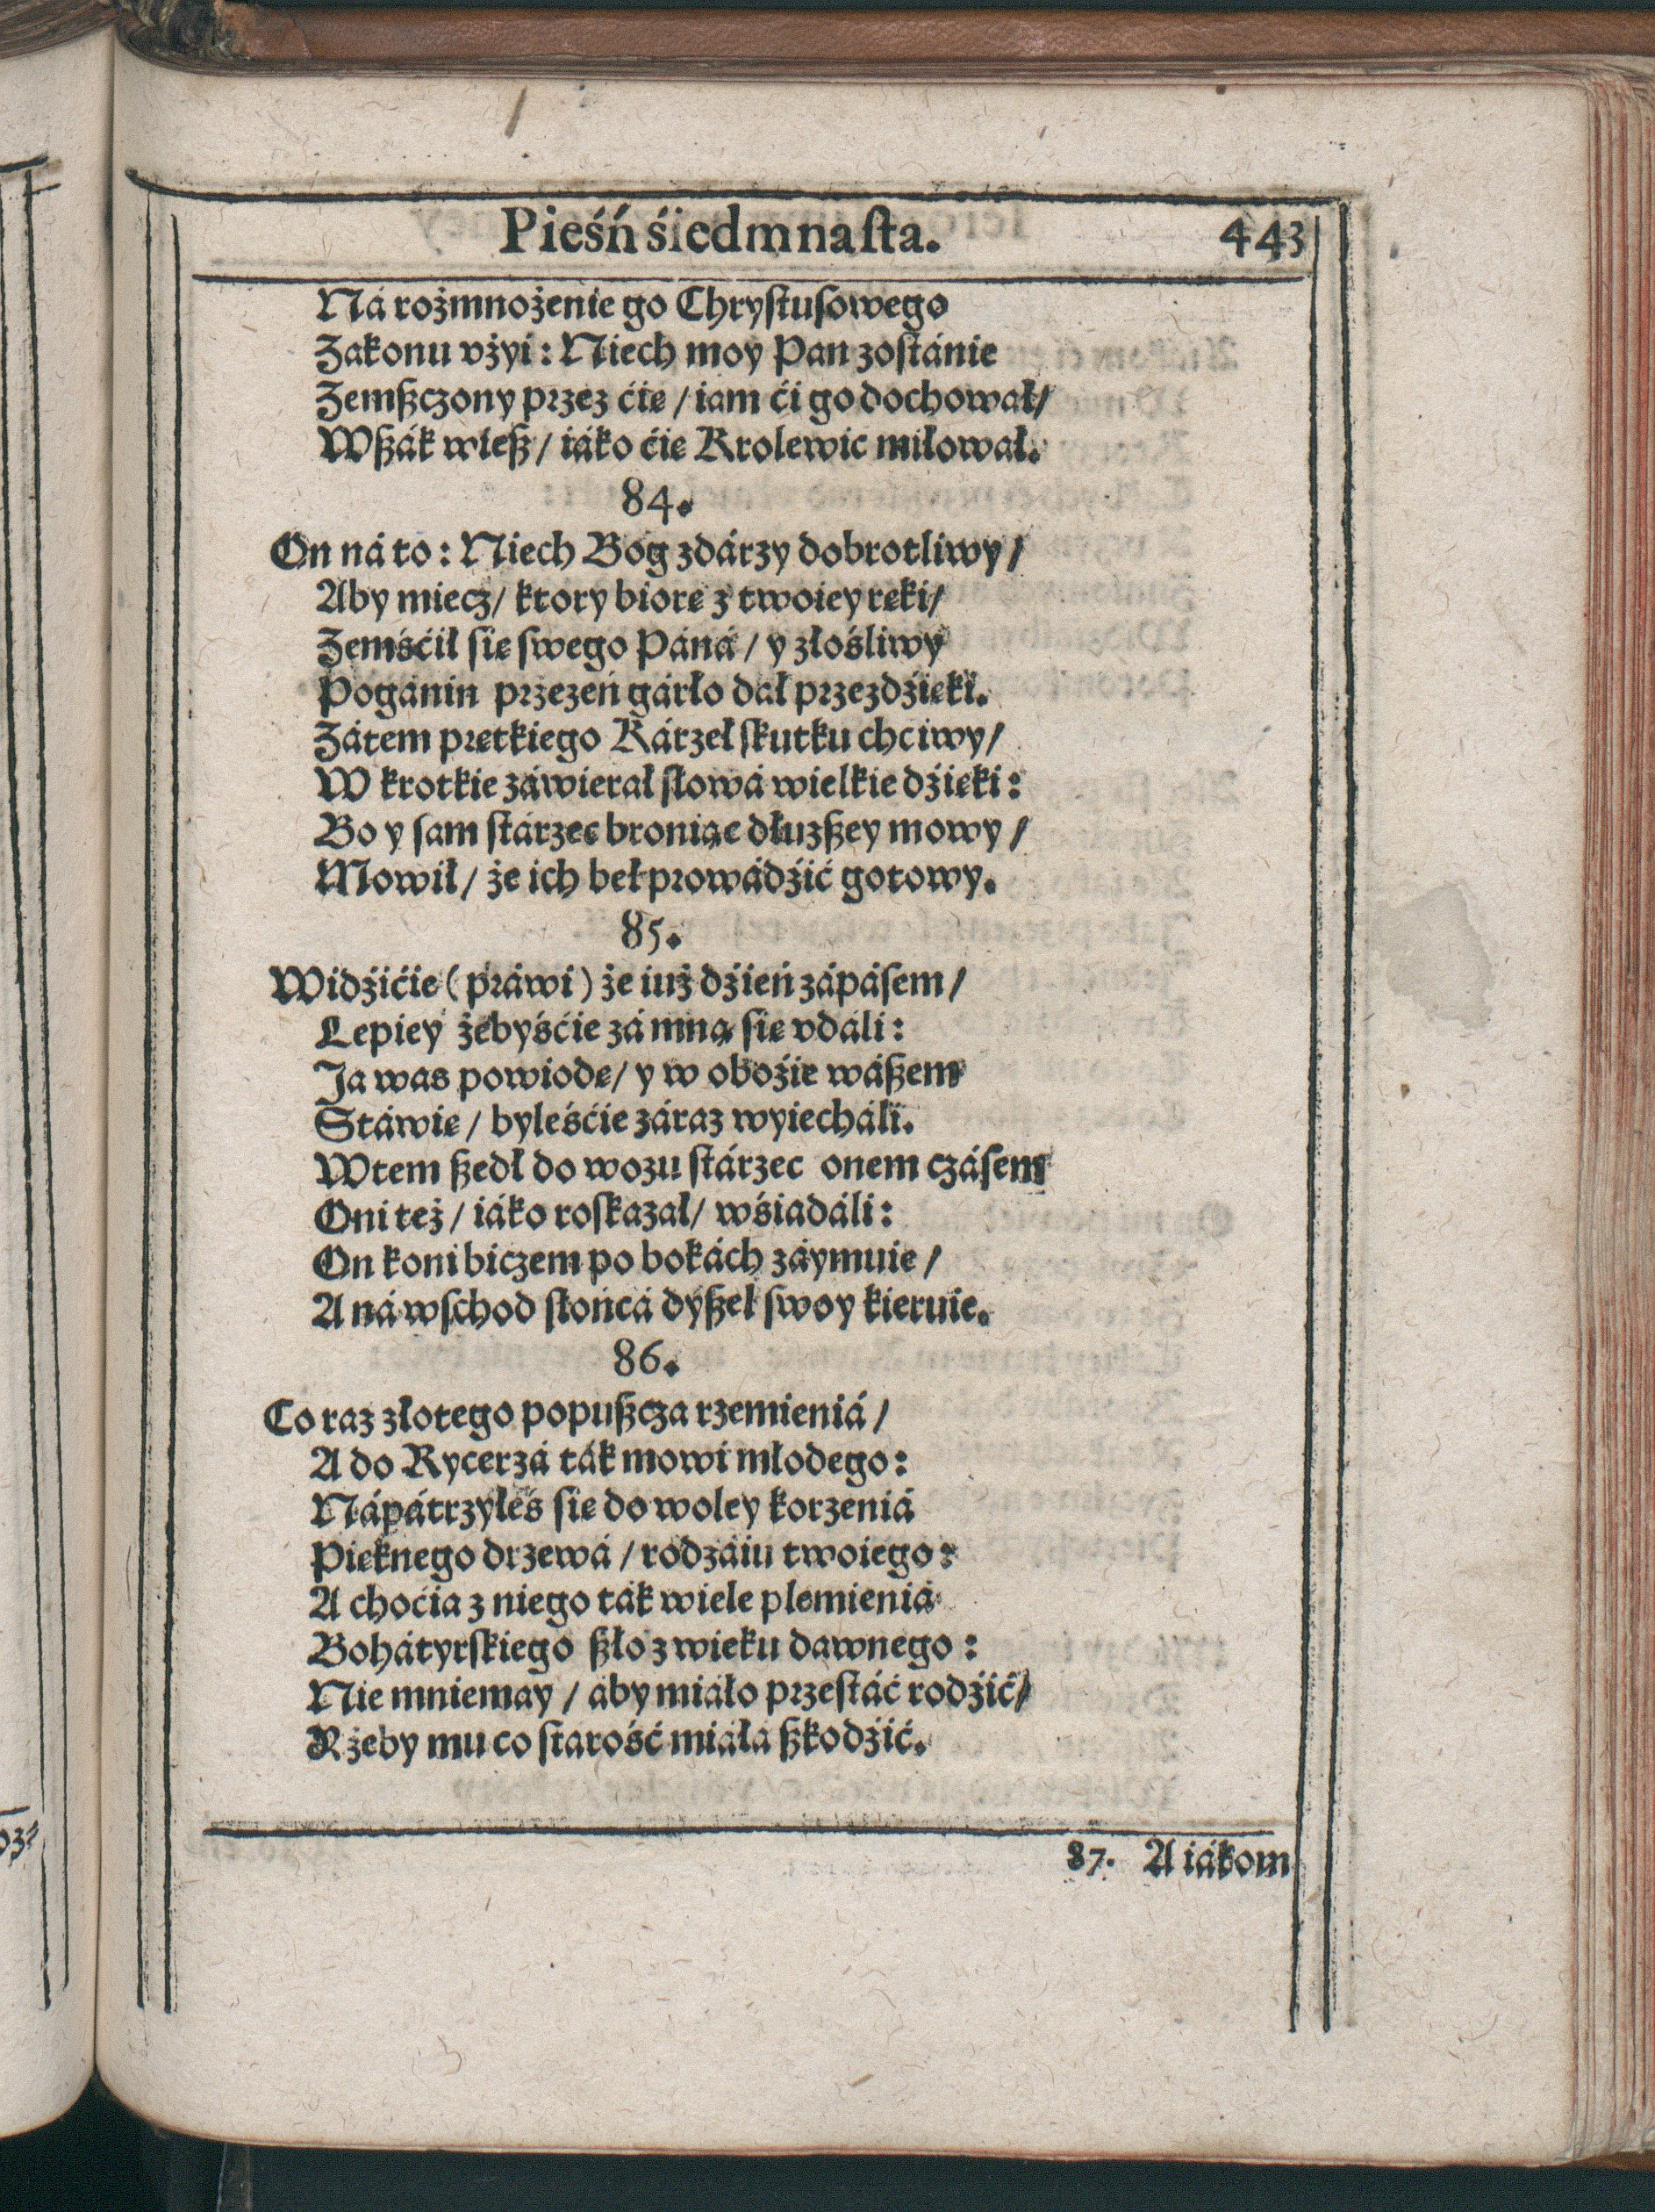 Pieśń śiedmnaſta. 443
Ná rożmnożenie go Chryſtuſowego
Zakonu vżyi: Niech moy Pan zoſtánie
Zemſzczony przez ćię / iam ći go dochował/
Wſzák wieſz / iáko ćię Krolewic miłował.
84.
On ná to: Niech Bog zdárzy dobrotliwy /
Aby miecz / ktory biorę z twoiey ręki/
Zemśćił ſię ſwego Páná / y złośliwy
Pogánin przezeń gárło dał przezdźięki.
Zátem prętkiego Kárzeł ſkutku chciwy/
W krotkie záwierał ſłowá wielkie dźięki:
Bo y ſam ſtárzec broniąc dłuzſzey mowy /
Mowił / że ich beł prowádźić gotowy.
85.
Widźićie (práwi) że iuż dźień zápáſem /
Lepiey żebyśćie zá mną ſię vdáli:
Ja was powiodę / y w oboźie wáſzem
Stáwię / byleśćie záraz wyiecháli.
Wtem ſzedł do wozu ſtárzec onem czáſem
Oni też / iáko roſkazał/ wśiadáli:
On koni biczem po bokách záymuie /
A ná wſchod ſłońcá dyſzel ſwoy kieruie.
86.
Co raz złotego popuſzcza rzemieniá /
A do Rycerzá ták mowi młodego:
Nápátrzyłeś ſię do woley korzeniá
Pięknego drzewá / rodzáiu twoiego:
A choćia z niego ták wiele plemieniá
Bohátyrſkiego ſzło z wieku dawnego:
Nie mniemay / áby miáło przeſtáć rodźić/
Y żeby mu co ſtarość miáłá ſzkodźić.
87. A iákom